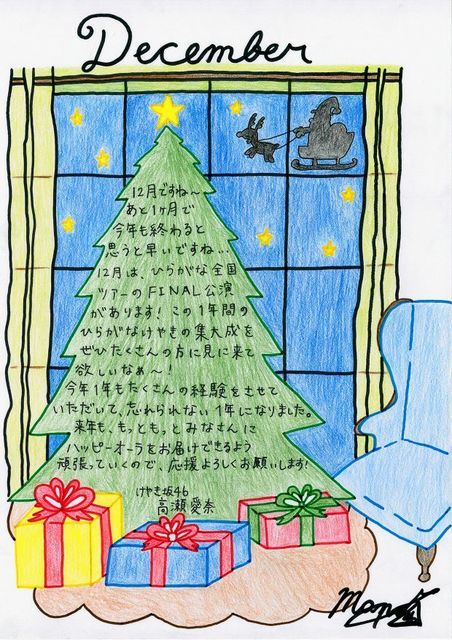 December
12月ですね〜
あと1ヶ月で
今年も終わると
思うと早いですね...
12月は、ひらがな全国
ツアーのFINAL公演
があります!この1年間の
ひらがなけやきの集大成を
ぜひたくさんの方に見に来て
欲しいなぁ〜!
今年1年もたくさんの経験をさせて
いただいて、忘れられない1年になりました。
来年も、もっともっとみなさんに
ハッピーオーラをお届けできるよう
頑張っていくので、応援よろしくお願いします!
けやき坂46
高瀬愛奈